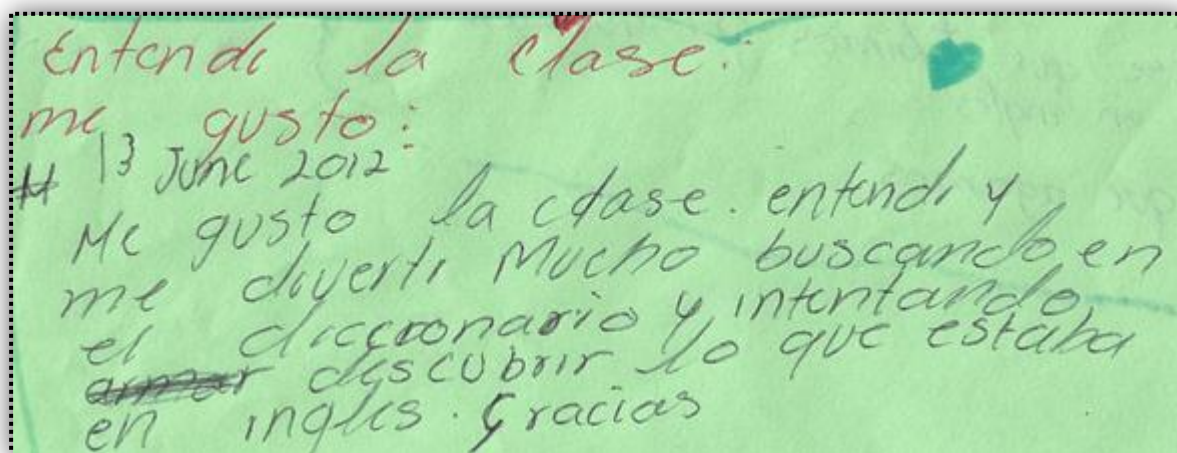 Entendi la clase:
me gusto:
# 13 June 2012
Me gusto la clase. entendi y
me diverti Mucho buscando en
el diccionario y intentando
descubrir lo que estaba
en ingles. Gracias